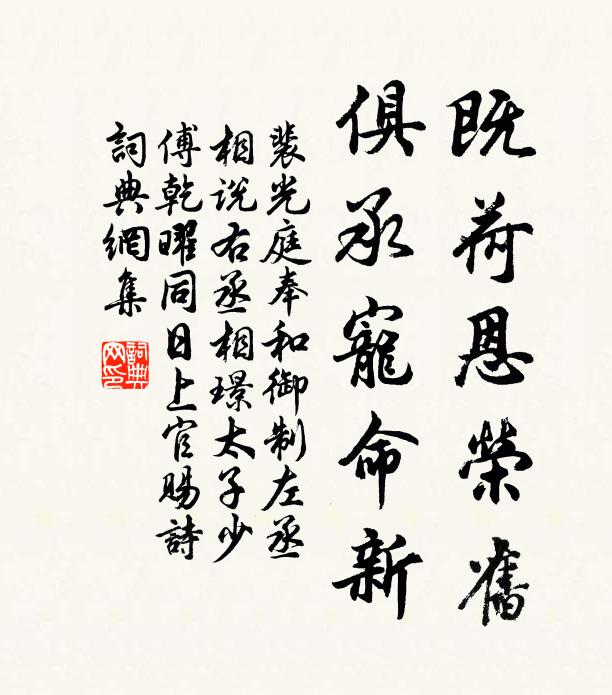 既荷恩榮舊
俱承寵命新
裴光庭奉和御制左丞
相说右丞相璟太子少
傅乾曜同日上官賜詩
詞典網集
詞典
网印